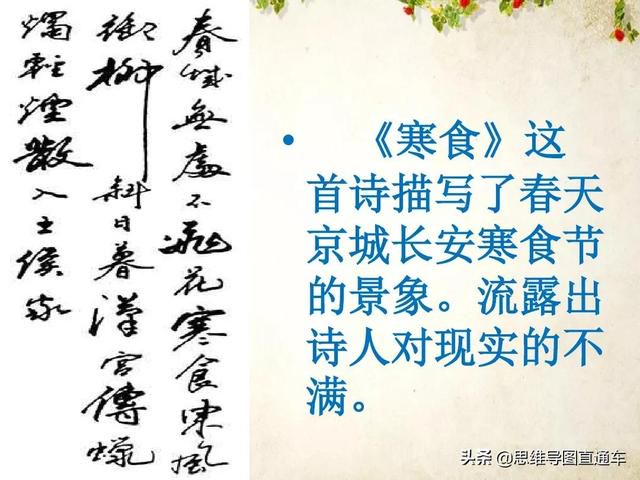 春城無處不飛花寒食東風
御柳斜日暮漢宮傳蠟
燭輕煙散入五侯家
• 《寒食》这
首诗描写了春天
京城长安寒食节
的景象。流露出
诗人对现实的不
满。
头条 @思维导图直通车